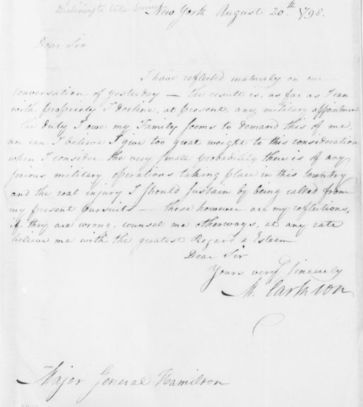 New York August 20th 1798.
Dear Sir
I have reflected maturely on our
conversation of yesterday — the result is, as far as I can
with propriety I decline, at present any military appointment
the duty I owe my Family seems to demand this of me,
nor can I believe I give too great weight to this consideration
when I consider the very small probability there is of any
serious military operations taking place in this Country
and the real injury I should sustain by being called from
my present pursuits — these however are my reflections,
if they are wrong, counsel me otherways, at any rate
believe me with the greatest Regard & Esteem
Dear Sir
Yours very Sincerely
M. Clarkson
Major General Hamilton